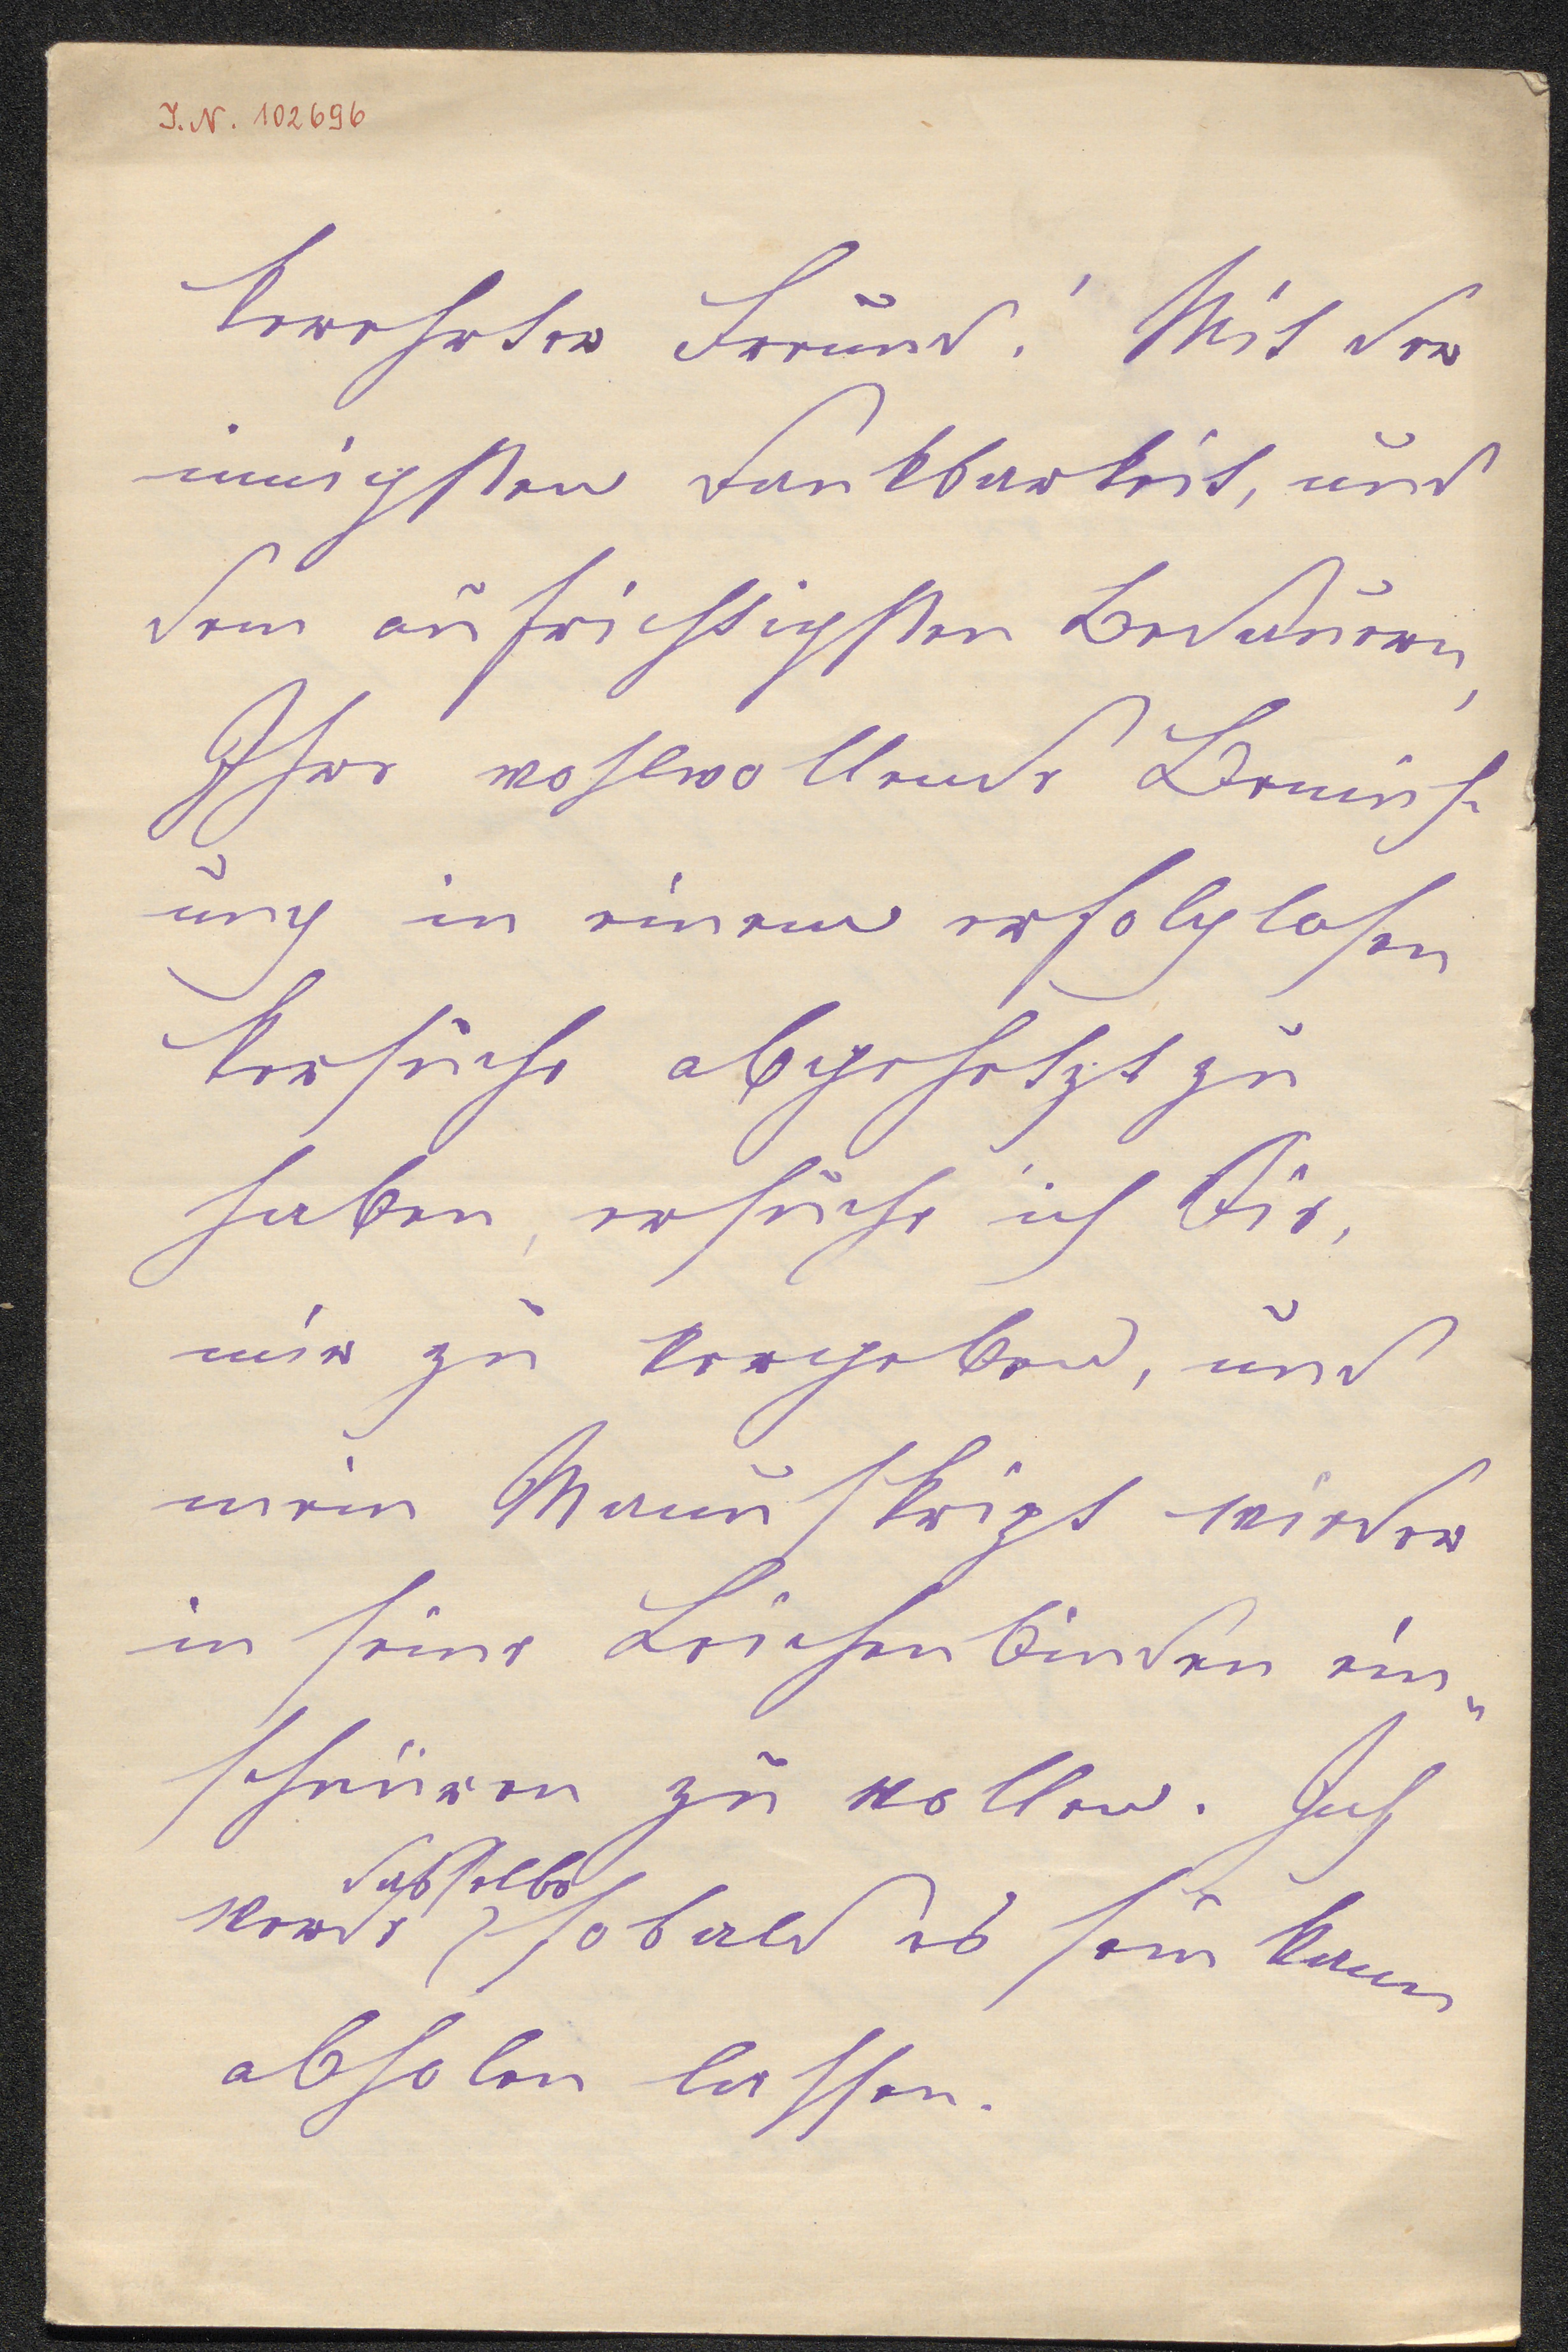 I.N. 102696
Verehrter Freund! Mit der
innigsten Dankbarkeit, und
dem aufrichtigsten Bedauern,
Ihre wohlwollende Bemüh-
ung in einem erfolglosen
Versuche abgehetzt zu
haben, ersuche ich Sie,
mir zu vergeben, und
mein Manuskript wieder
in seine Leichenbinden ein-
schnüren zu wollen. Ich
dasselbe
werde sobald es sein kann
abholen lassen.